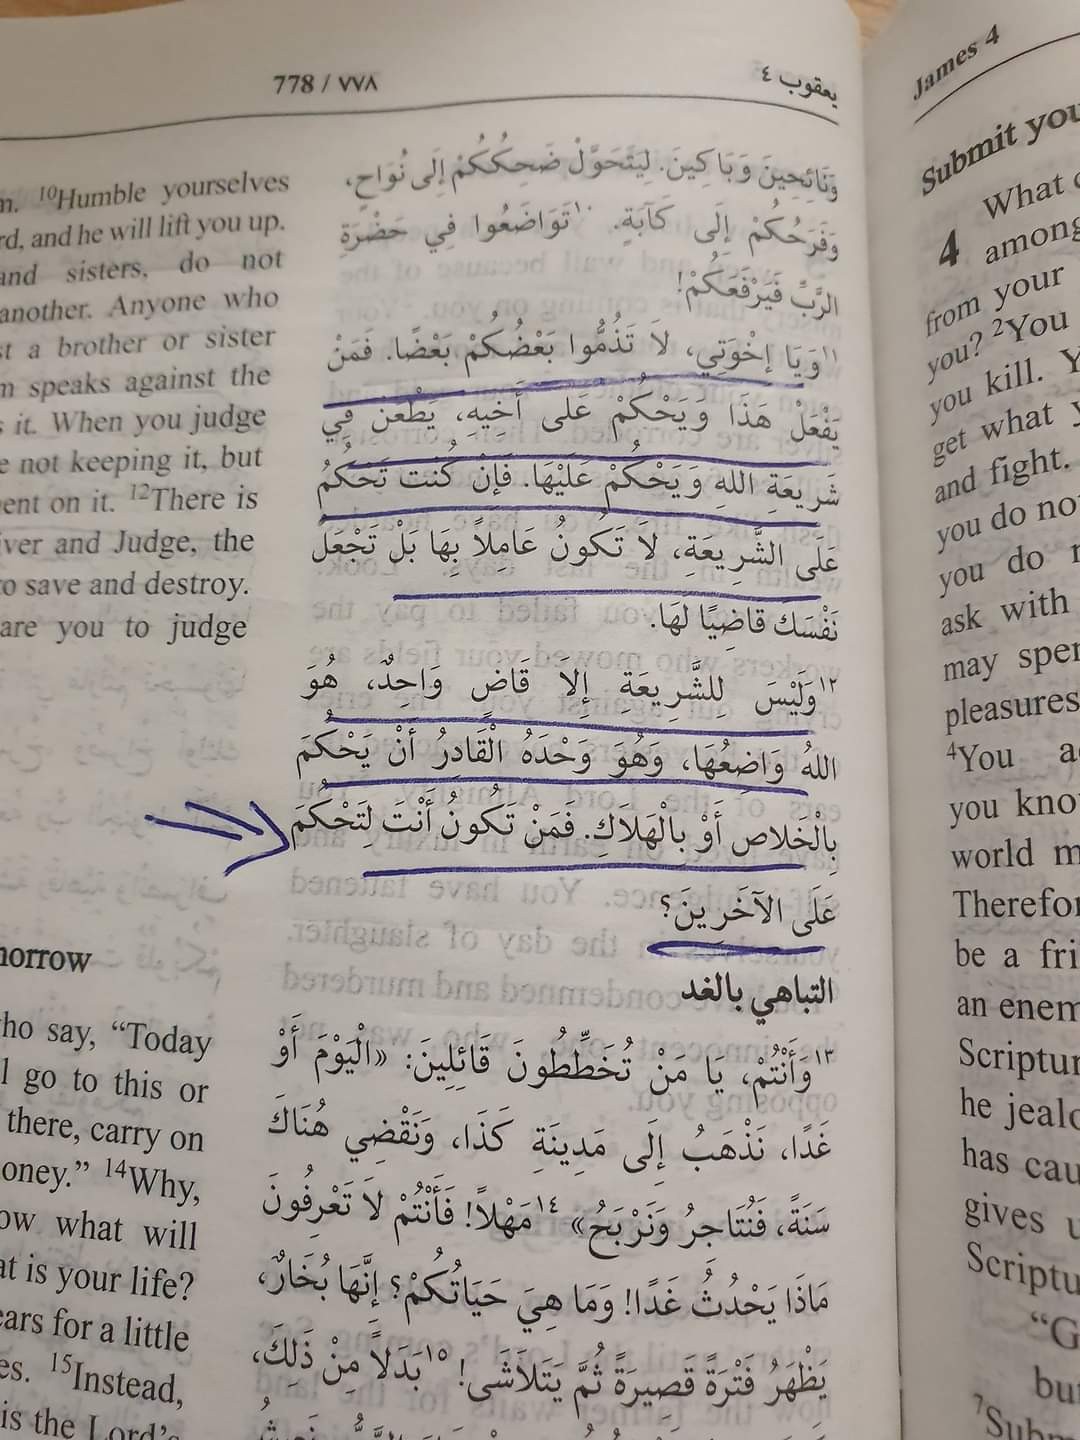 778 / ٧٧٨
يعقوب ٤
m. ¹⁰Humble yourselves
rd, and he will lift you up.
and sisters, do not
another. Anyone who
st a brother or sister
m speaks against the
s it. When you judge
e not keeping it, but
ent on it. ¹²There is
iver and Judge, the
to save and destroy.
are you to judge
morrow
ho say, “Today
l go to this or
there, carry on
oney.” ¹⁴Why,
ow what will
at is your life?
ears for a little
es. ¹⁵Instead,
is the Lord’s
وَنَائِحِينَ وَبَاكِينَ. لِيَتَحَوَّلْ ضَحِكُكُمْ إِلَى نُوَاحٍ،
وَفَرَحُكُمْ إِلَى كَآبَةٍ. ¹⁰تَوَاضَعُوا فِي حَضْرَةِ
الرَّبِّ فَيَرْفَعَكُمْ!
¹¹وَيَا إِخْوَتِي، لاَ تَذُمُّوا بَعْضُكُمْ بَعْضًا. فَمَنْ
يَفْعَلْ هَذَا وَيَحْكُمْ عَلَى أَخِيهِ، يَطْعَنْ فِي
شَرِيعَةِ اللهِ وَيَحْكُمْ عَلَيْهَا. فَإِنْ كُنت تَحكُمُ
عَلَى الشَّرِيعَةِ، لاَ تَكُونُ عَامِلاً بِهَا بَلْ تَجْعَلُ
نَفْسَكَ قاضِيًا لَهَا.
¹²وَلَيْسَ لِلشَّرِيعَةِ إِلاَ قَاضٍ وَاحِدٌ، هُوَ
اللهُ وَاضِعُهَا، وَهُوَ وَحْدَهُ الْقَادِرُ أَنْ يَحْكُمَ
بِالْخَلاصِ أَوْ بِالْهَلاَكِ. فَمَنْ تَكُونُ أَنْتَ لِتَحْكُمَ
عَلَى الآخَرِينَ؟
التباهي بالغد
¹³وَأَنْتُمْ، يَا مَنْ تُخَطِّطُونَ قَائِلِينَ: «الْيَوْمَ أَوْ
غَدًا، نَذْهَبُ إِلَى مَدِينَةِ كَذَا، وَنَقْضِي هُنَاكَ
سَنَةً، فَنُتَاجِرُ وَنَرْبَحُ» ¹⁴مَهْلاً! فَأَنْتُمْ لاَ تَعْرِفُونَ
مَاذَا يَحْدُثُ غَدًا! وَمَا هِيَ حَيَاتُكُمْ؟ إِنَّهَا بُخَارٌ،
يَظْهَرُ فَتْرَةً قَصِيرَةً ثُمَّ يَتَلاَشَى! ¹⁵بَدَلاً مِنْ ذَلِكَ،
James 4
Submit you
4 What c
among
from your
you? ²You
you kill. Y
get what y
and fight.
you do no
you do n
ask with
may spen
pleasures
⁴You a
you kno
world m
Therefor
be a fri
an enem
Scriptur
he jealo
has cau
gives u
Scriptu
“G
bu
⁷Subm